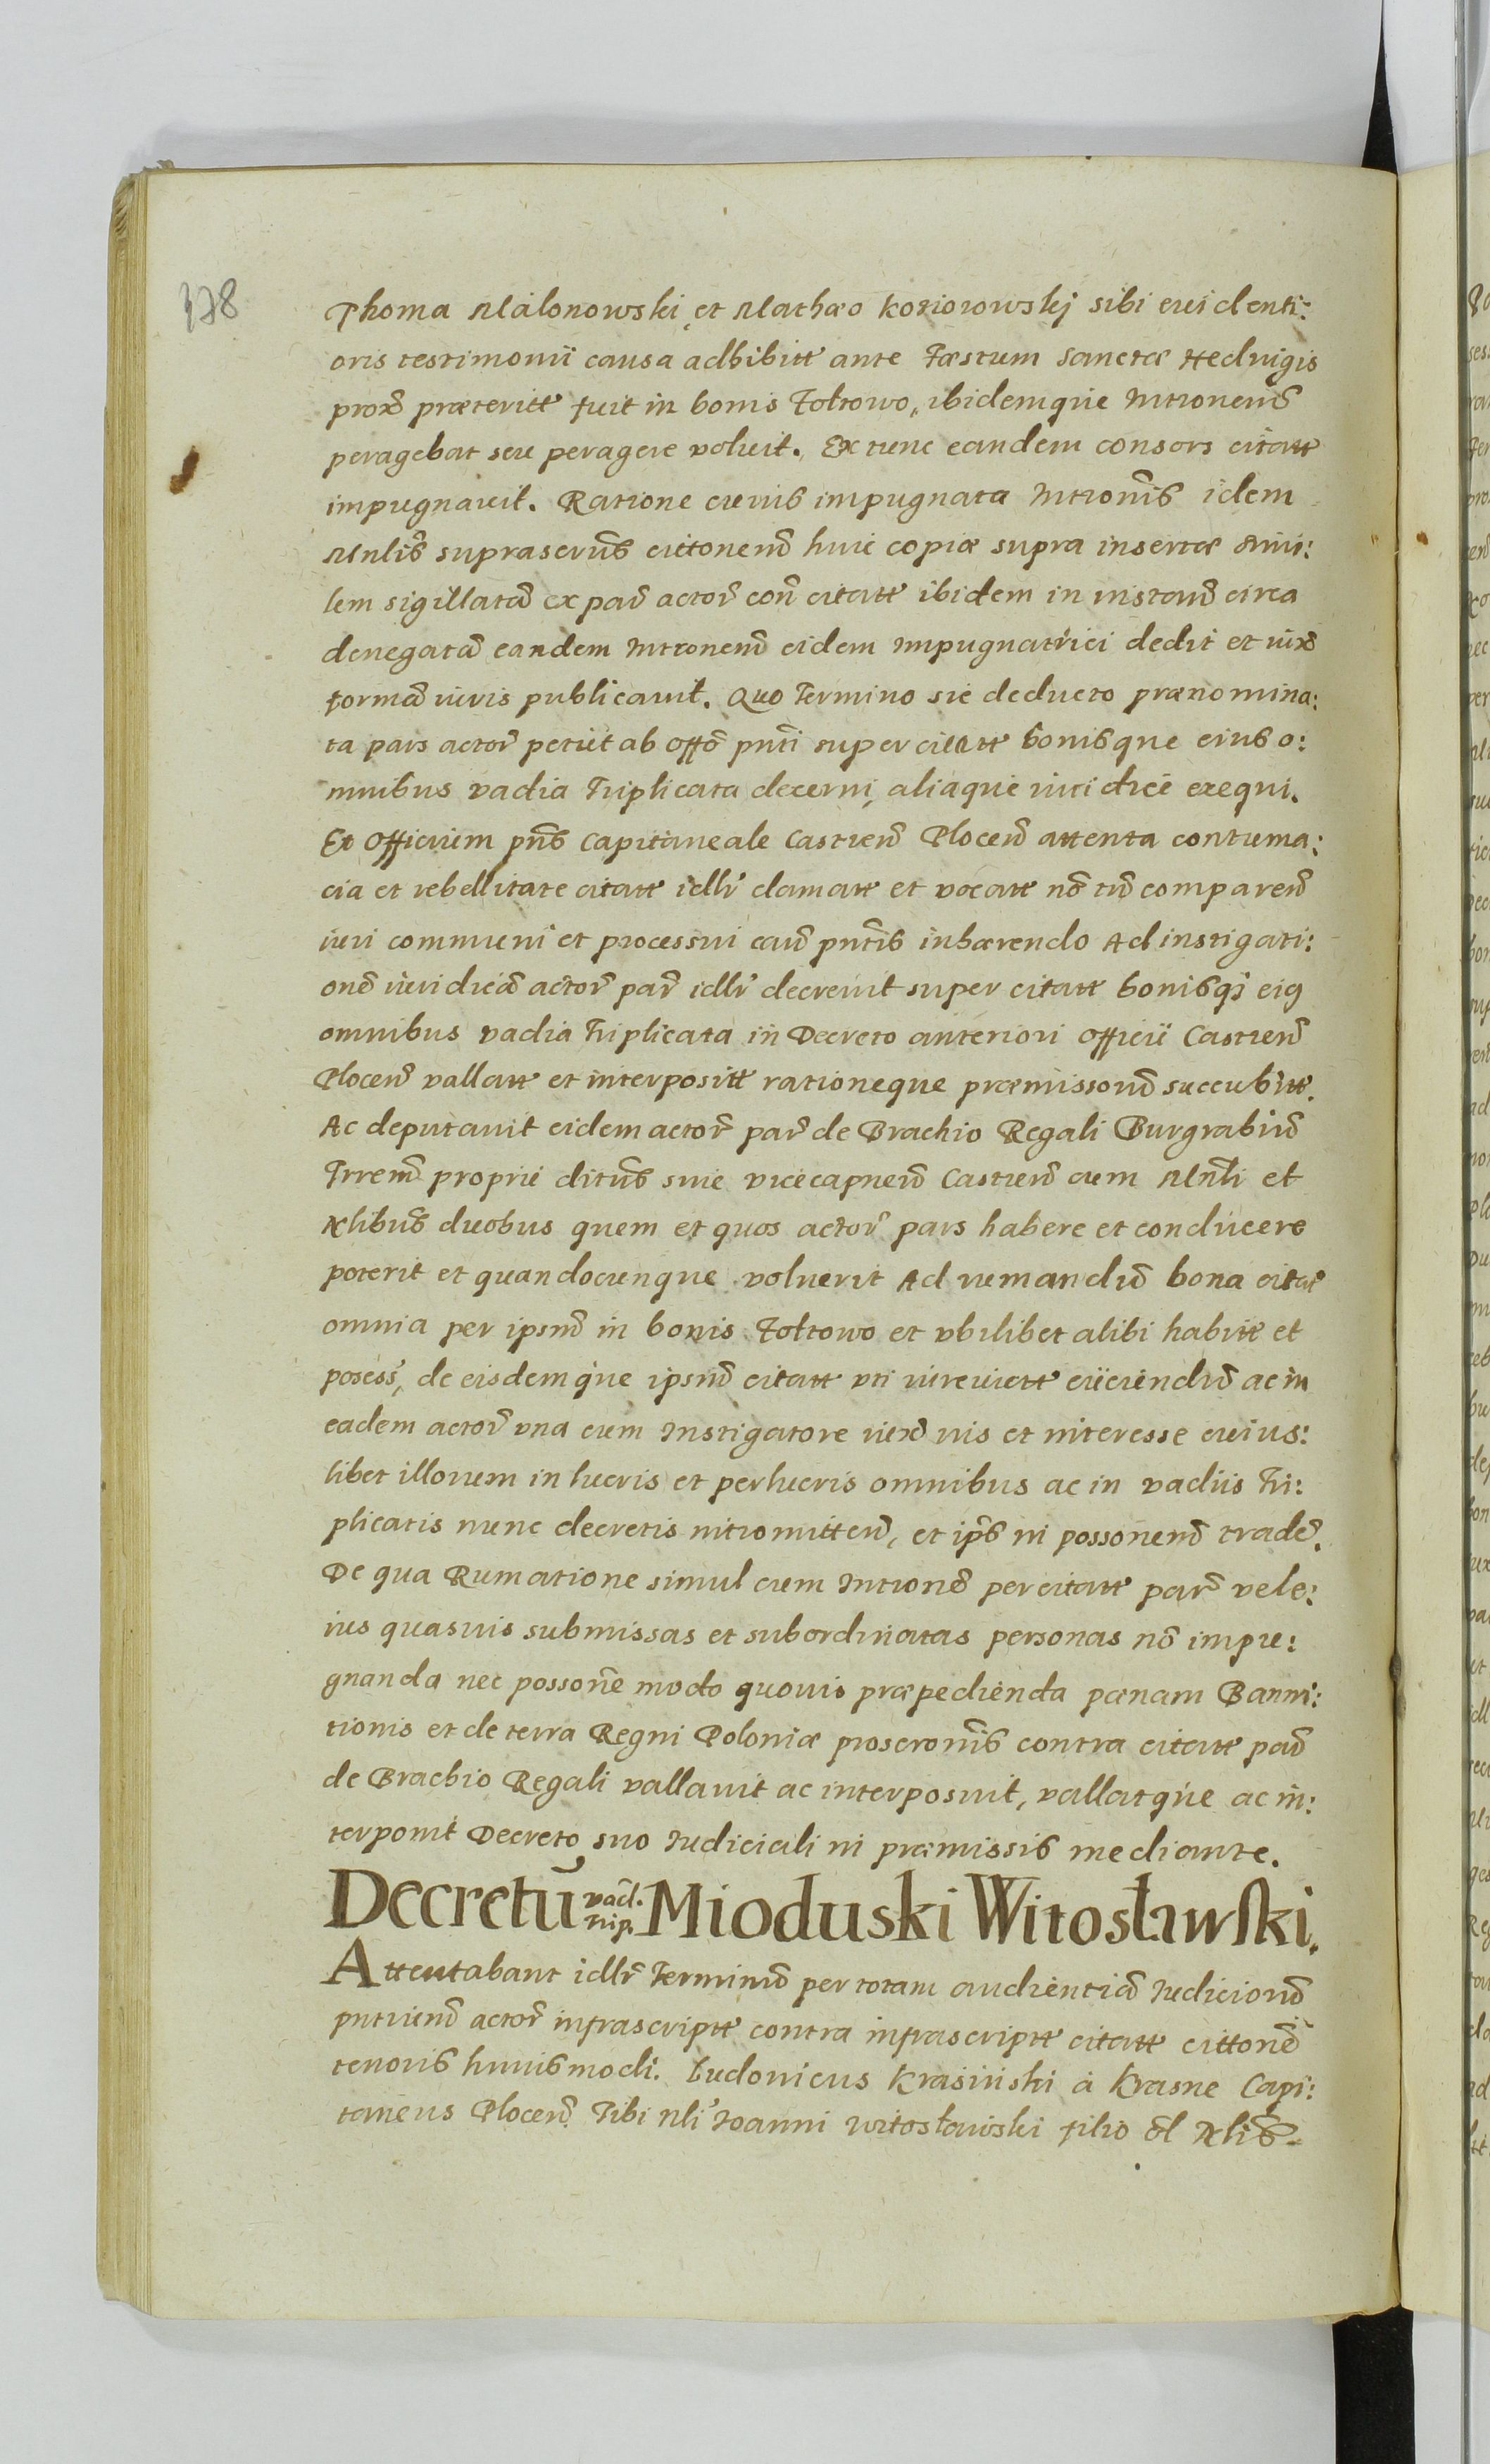 378
Thoma Malonowski, et Mathæo Kosiorowskj sibi euidenti:
oris testimonii causa adhibitt ante Fæstum Sanctæ Heduigis
proxõ præteritt fuit in bonis Foltowo, ibidemque Intronem̃
peragebat seu peragere voluit. Ex tunc eandem consors citatt
impugnauit. Ratione cuius impugnata Introñis idem
Mnlis̃ suprascrñs cittonem̃ huic copiæ supra insertæ simi:
lem sigillatã ex par̃ actor̃ coñ citatt ibidem in instanĩ circa
denegatã eandem Intronem̃ eidem impugnatrici dedit et iuxõ
formã iuris publicauit. Quo Termino sic deducto prænomina:
ta pars actor̃ petiit ab offõ pnti super citatt bonisque eius o:
mnibus vadia Triplicata decerni, aliaque iuridicè exequi.
Et Officium pñs Capitaneale Castren̄ Plocen̄ attenta contuma:
cia et rebellitate citatt idlr̃ clamatt et vocatt nõ tñ comparen̄
iuri communi et processui cauš pntis inhærendo Ad instigati:
onẽ iuridicã actor̃ par̃ idlr̃ decreuit super citatt bonisq̃ eig
omnibus vadia Triplicata in Decreto anteriori Officii Castren̄
Plocen̄ vallatt et interpositt rationeque præmissorũ succubitt.
Ac deputauit eidem actor̃ par̃ de Brachio Regali Burgrabiũ
Trrem̃ proprie dictũs siue vicecapneũ Castren̄ cum Mnli et
Nlibus̃ duobus quem et quos actor̃ pars habere et conducere
poterit et quandocunque voluerit Ad rumandũ bona citat
omnia per ipsũ in bonis Foltowo et vbilibet alibi habitt et
posess̃, de eisdemque ipsum̃ citatt vti iureuictt eiiciendũ ac in
eadem actor̃ vna cum Instigatore iuxõ uis et interesse cuius:
libet illorum in lucris et perlucris omnibus ac in vadiis Tri:
plicatis nunc decretis intromitten̄, et ips̃ in possonem̃ trade.
De qua Rumatione simul cum Intronẽ per citatt par̃ vel e:
ius quasuis submissas et subordinatas personas nõ impu:
gnanda nec possonẽ modo quouis præpedienda pænam Banni:
tionis et de terra Regni Poloniæ proscronñis contra citatt par̃
de Brachio Regali vallauit ac interposuit, vallatque ac in:
terponit Decreto suo Iudiciali in præmissis mediante.
Decretũ vad. trip. Mioduski Witosławski.
Attentabant idlr̃ Terminũ per totam audientiã Iudiciorũ
pntium̃ actor̃ infrascriptt contra infrascriptt citatt cittonẽ
tenoris huiusmodi. Ludouicus Krasiński à Krasne Capi:
taneus Plocen̄. Tibi Nli Ioanni Witosławski filio ol̃ Nlis̃